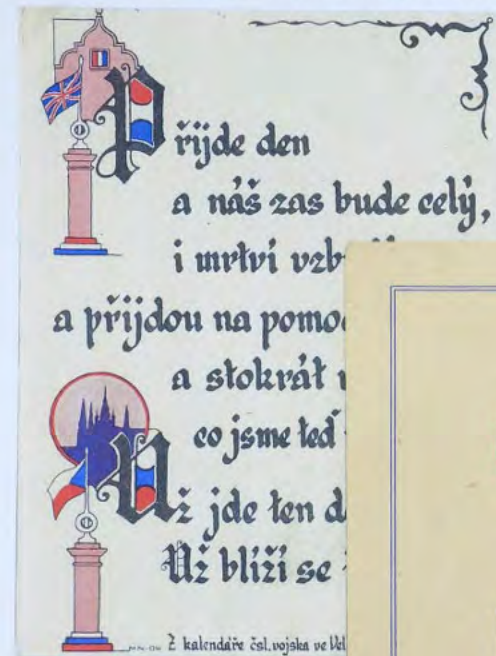 Přijde den
a náš zas bude celý,
i mrtví
a přijdou na
a stokrát
co jsme teď
Už jde ten
Už blíží se
Z kalendáře čsl. vojska ve